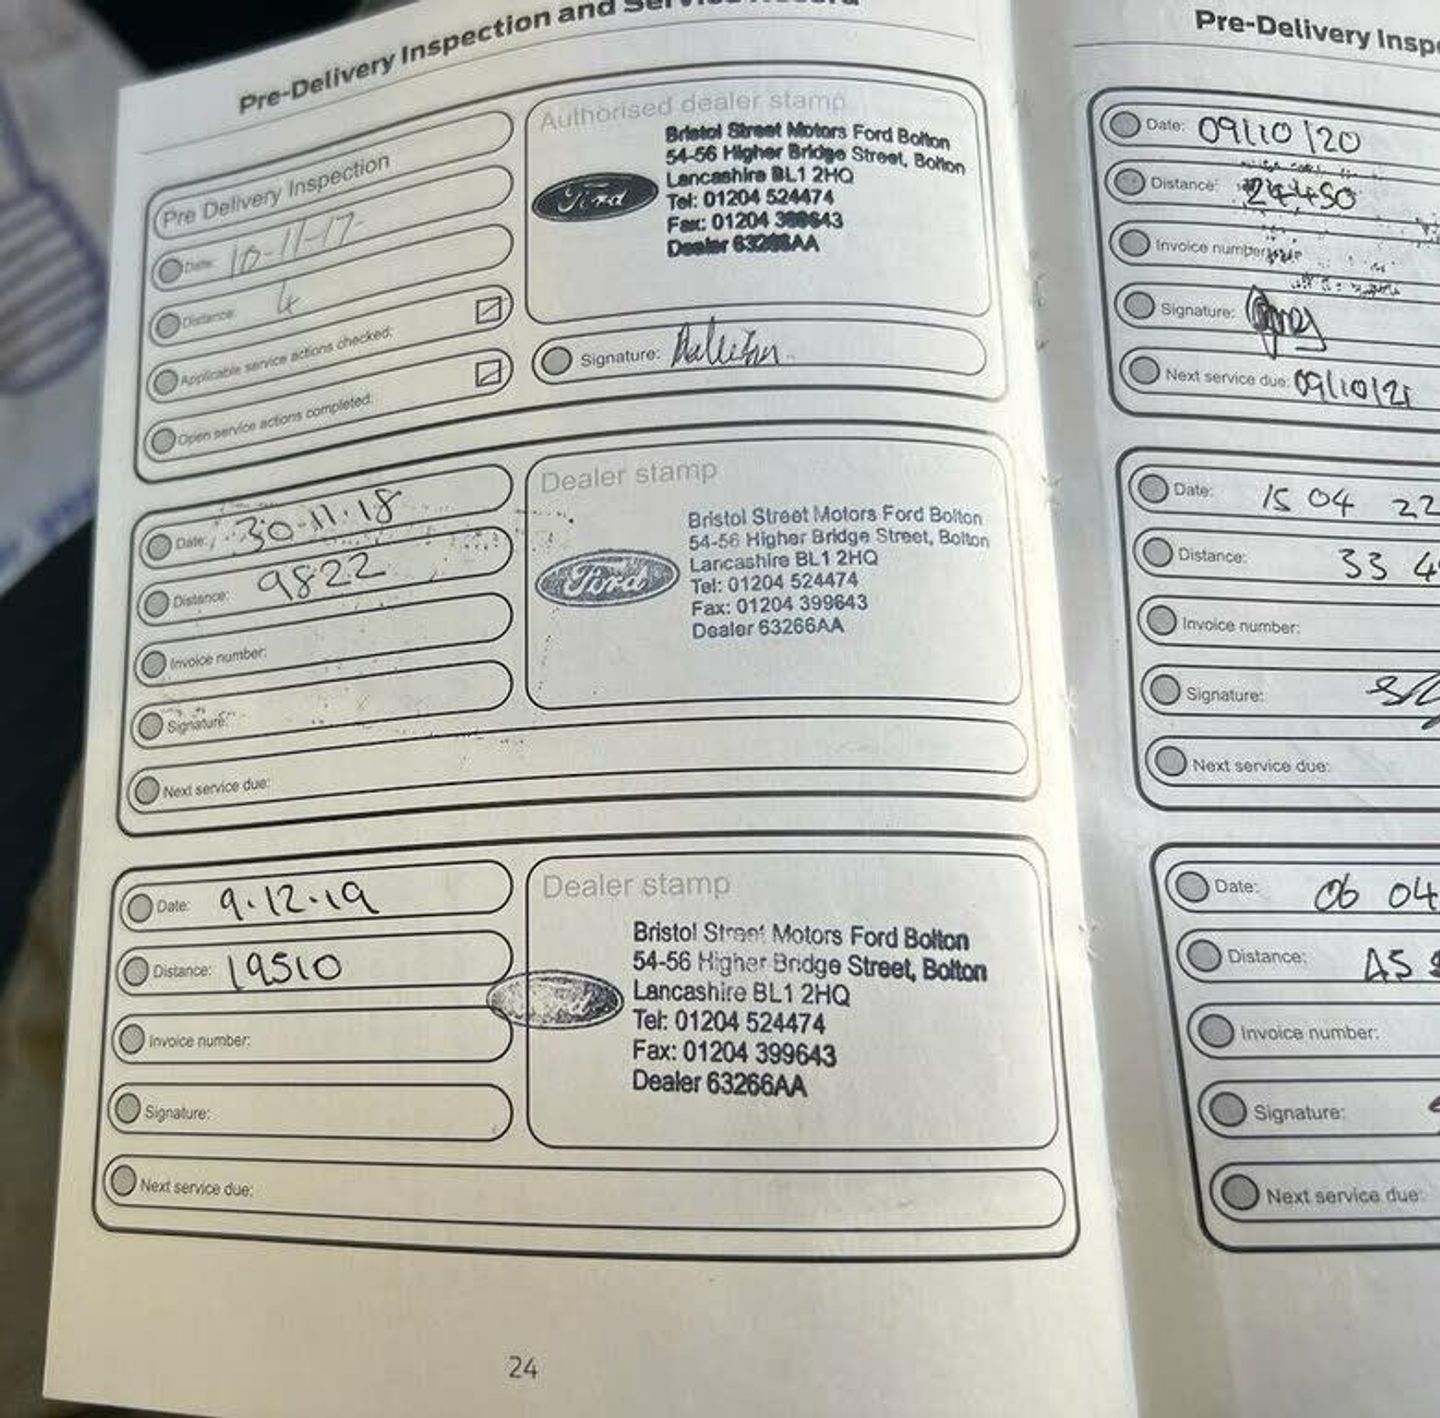 Pre-Delivery Inspection and Service Record
Pre Delivery Inspection
Date: 10-11-17
Distance: 4
Applicable service actions checked:
Open service actions completed:
Authorised dealer stamp
Ford
Bristol Street Motors Ford Bolton
54-56 Higher Bridge Street, Bolton
Lancashire BL1 2HQ
Tel: 01204 524474
Fax: 01204 399643
Dealer 63266AA
Signature:
Date: 30.11.18
Distance: 9822
Invoice number:
Signature:
Next service due:
Dealer stamp
Ford
Bristol Street Motors Ford Bolton
54-56 Higher Bridge Street, Bolton
Lancashire BL1 2HQ
Tel: 01204 524474
Fax: 01204 399643
Dealer 63266AA
Date: 9.12.19
Distance: 19510
Invoice number:
Signature:
Next service due:
Dealer stamp
Bristol Street Motors Ford Bolton
54-56 Higher Bridge Street, Bolton
Lancashire BL1 2HQ
Tel: 01204 524474
Fax: 01204 399643
Dealer 63266AA
24
Pre-Delivery Inspe
Date: 09/10/20
Distance: 24450
Invoice number:
Signature:
Next service due: 09/10/21
Date: 15 04 22
Distance: 33 4
Invoice number:
Signature:
Next service due:
Date: 06 04
Distance:
Invoice number:
Signature:
Next service due: